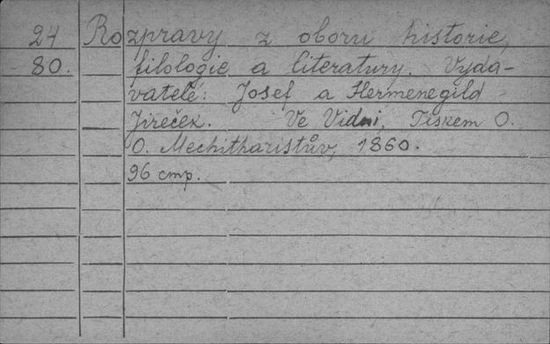 24 Rozpravy z oboru historie,
80. filologie a literatury. Vyda-
vatelé: Josef a Hermenegild
Jireček. Ve Vidni, Tiskem O.
O. Mechitharistův, 1860.
96 cmp.